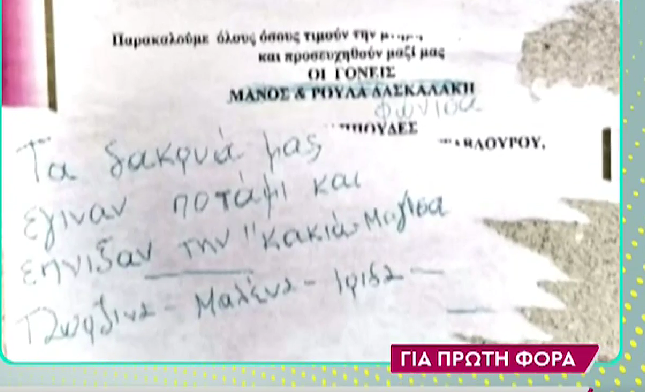 Παρακαλούμε όλους όσους τιμούν την
και προσευχηθούν μαζί μας
ΟΙ ΓΟΝΕΙΣ
ΜΑΝΟΣ & ΡΟΥΛΑ ΔΑΣΚΑΛΑΚΗ
φώνισα
Τα δακρυά μας
έγιναν ποτάμι και
επνιξαν την "Κακιά Μάγισα
Τζωρζίνα - Μαλένα - Ιριδα -
ΓΙΑ ΠΡΩΤΗ ΦΟΡΑ